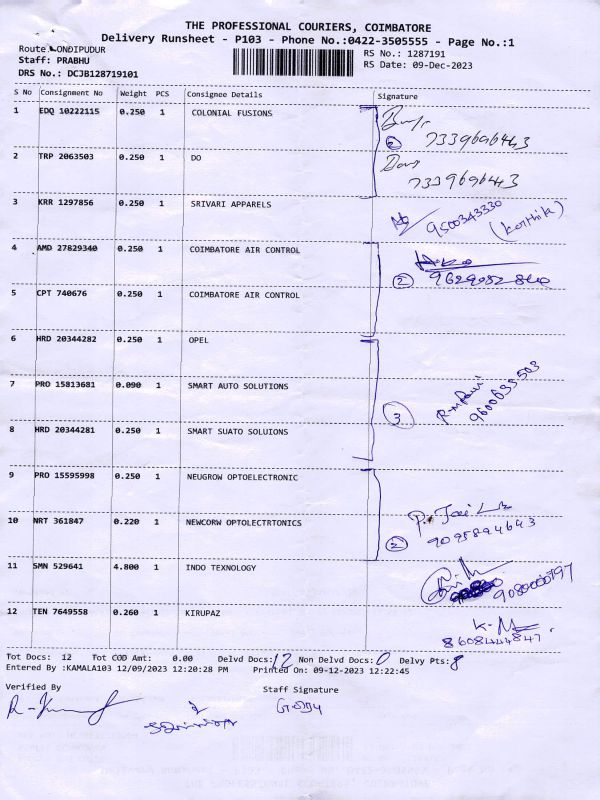 THE PROFESSIONAL COURIERS, COIMBATORE
Delivery Runsheet - P103 - Phone No.:0422-3505555 - Page No.:1
Route ONDIPUDUR
RS No.: 1287191
Staff: PRABHU
RS Date: 09-Dec-2023
DRS No.: DCJB128719101
S No Consignment No Weight PCS Consignee Details Signature
1 EDQ 10222115 0.250 1 COLONIAL FUSIONS
2 7339696443
2 TRP 2063503 0.250 1 DO
7339696443
3 KRR 1297856 0.250 1 SRIVARI APPARELS
9500343330
(Karthik)
4 AMD 27829340 0.250 1 COIMBATORE AIR CONTROL
2
5 CPT 740676 0.250 1 COIMBATORE AIR CONTROL
6 HRD 20344282 0.250 1 OPEL
7 PRO 15813681 0.090 1 SMART AUTO SOLUTIONS
3 9600633503
8 HRD 20344281 0.250 1 SMART SUATO SOLUIONS
9 PRO 15595998 0.250 1 NEUGROW OPTOELECTRONIC
10 NRT 361847 0.220 1 NEWCORW OPTOLECTRTONICS
2 9095894643
11 SMN 529641 4.800 1 INDO TEXNOLOGY
12 TEN 7649558 0.260 1 KIRUPAZ
8608444847
Tot Docs: 12 Tot COD Amt: 0.00 Delvd Docs: 12 Non Delvd Docs: 0 Delvy Pts: 8
Entered By :KAMALA103 12/09/2023 12:20:28 PM Printed On: 09-12-2023 12:22:45
Verified By Staff Signature